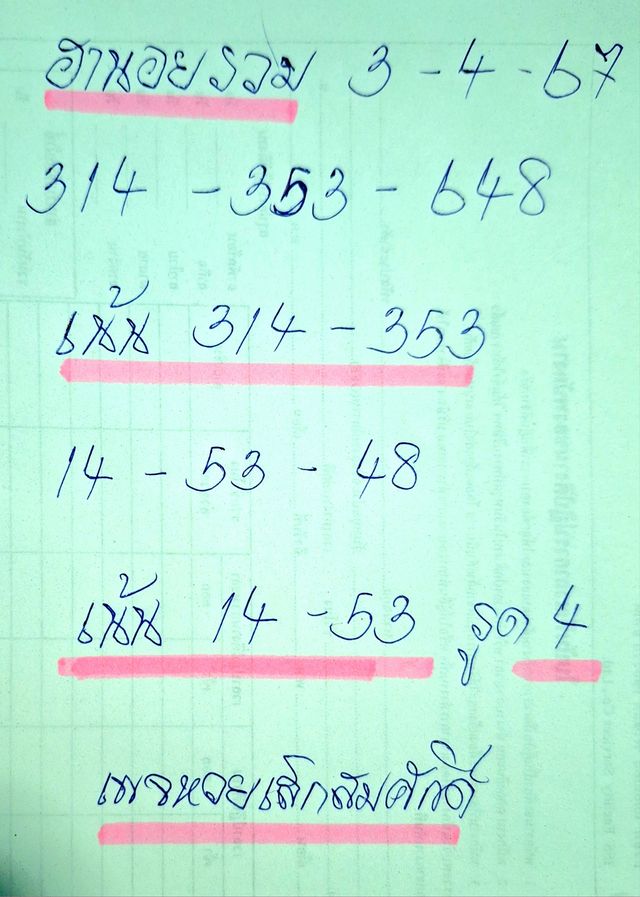 ฮานอยรวม 3-4-67
314 - 353 - 648
เน้น 314 - 353
14 - 53 - 48
เน้น 14 - 53 รูด 4
เพจหวยเสกสมศักดิ์